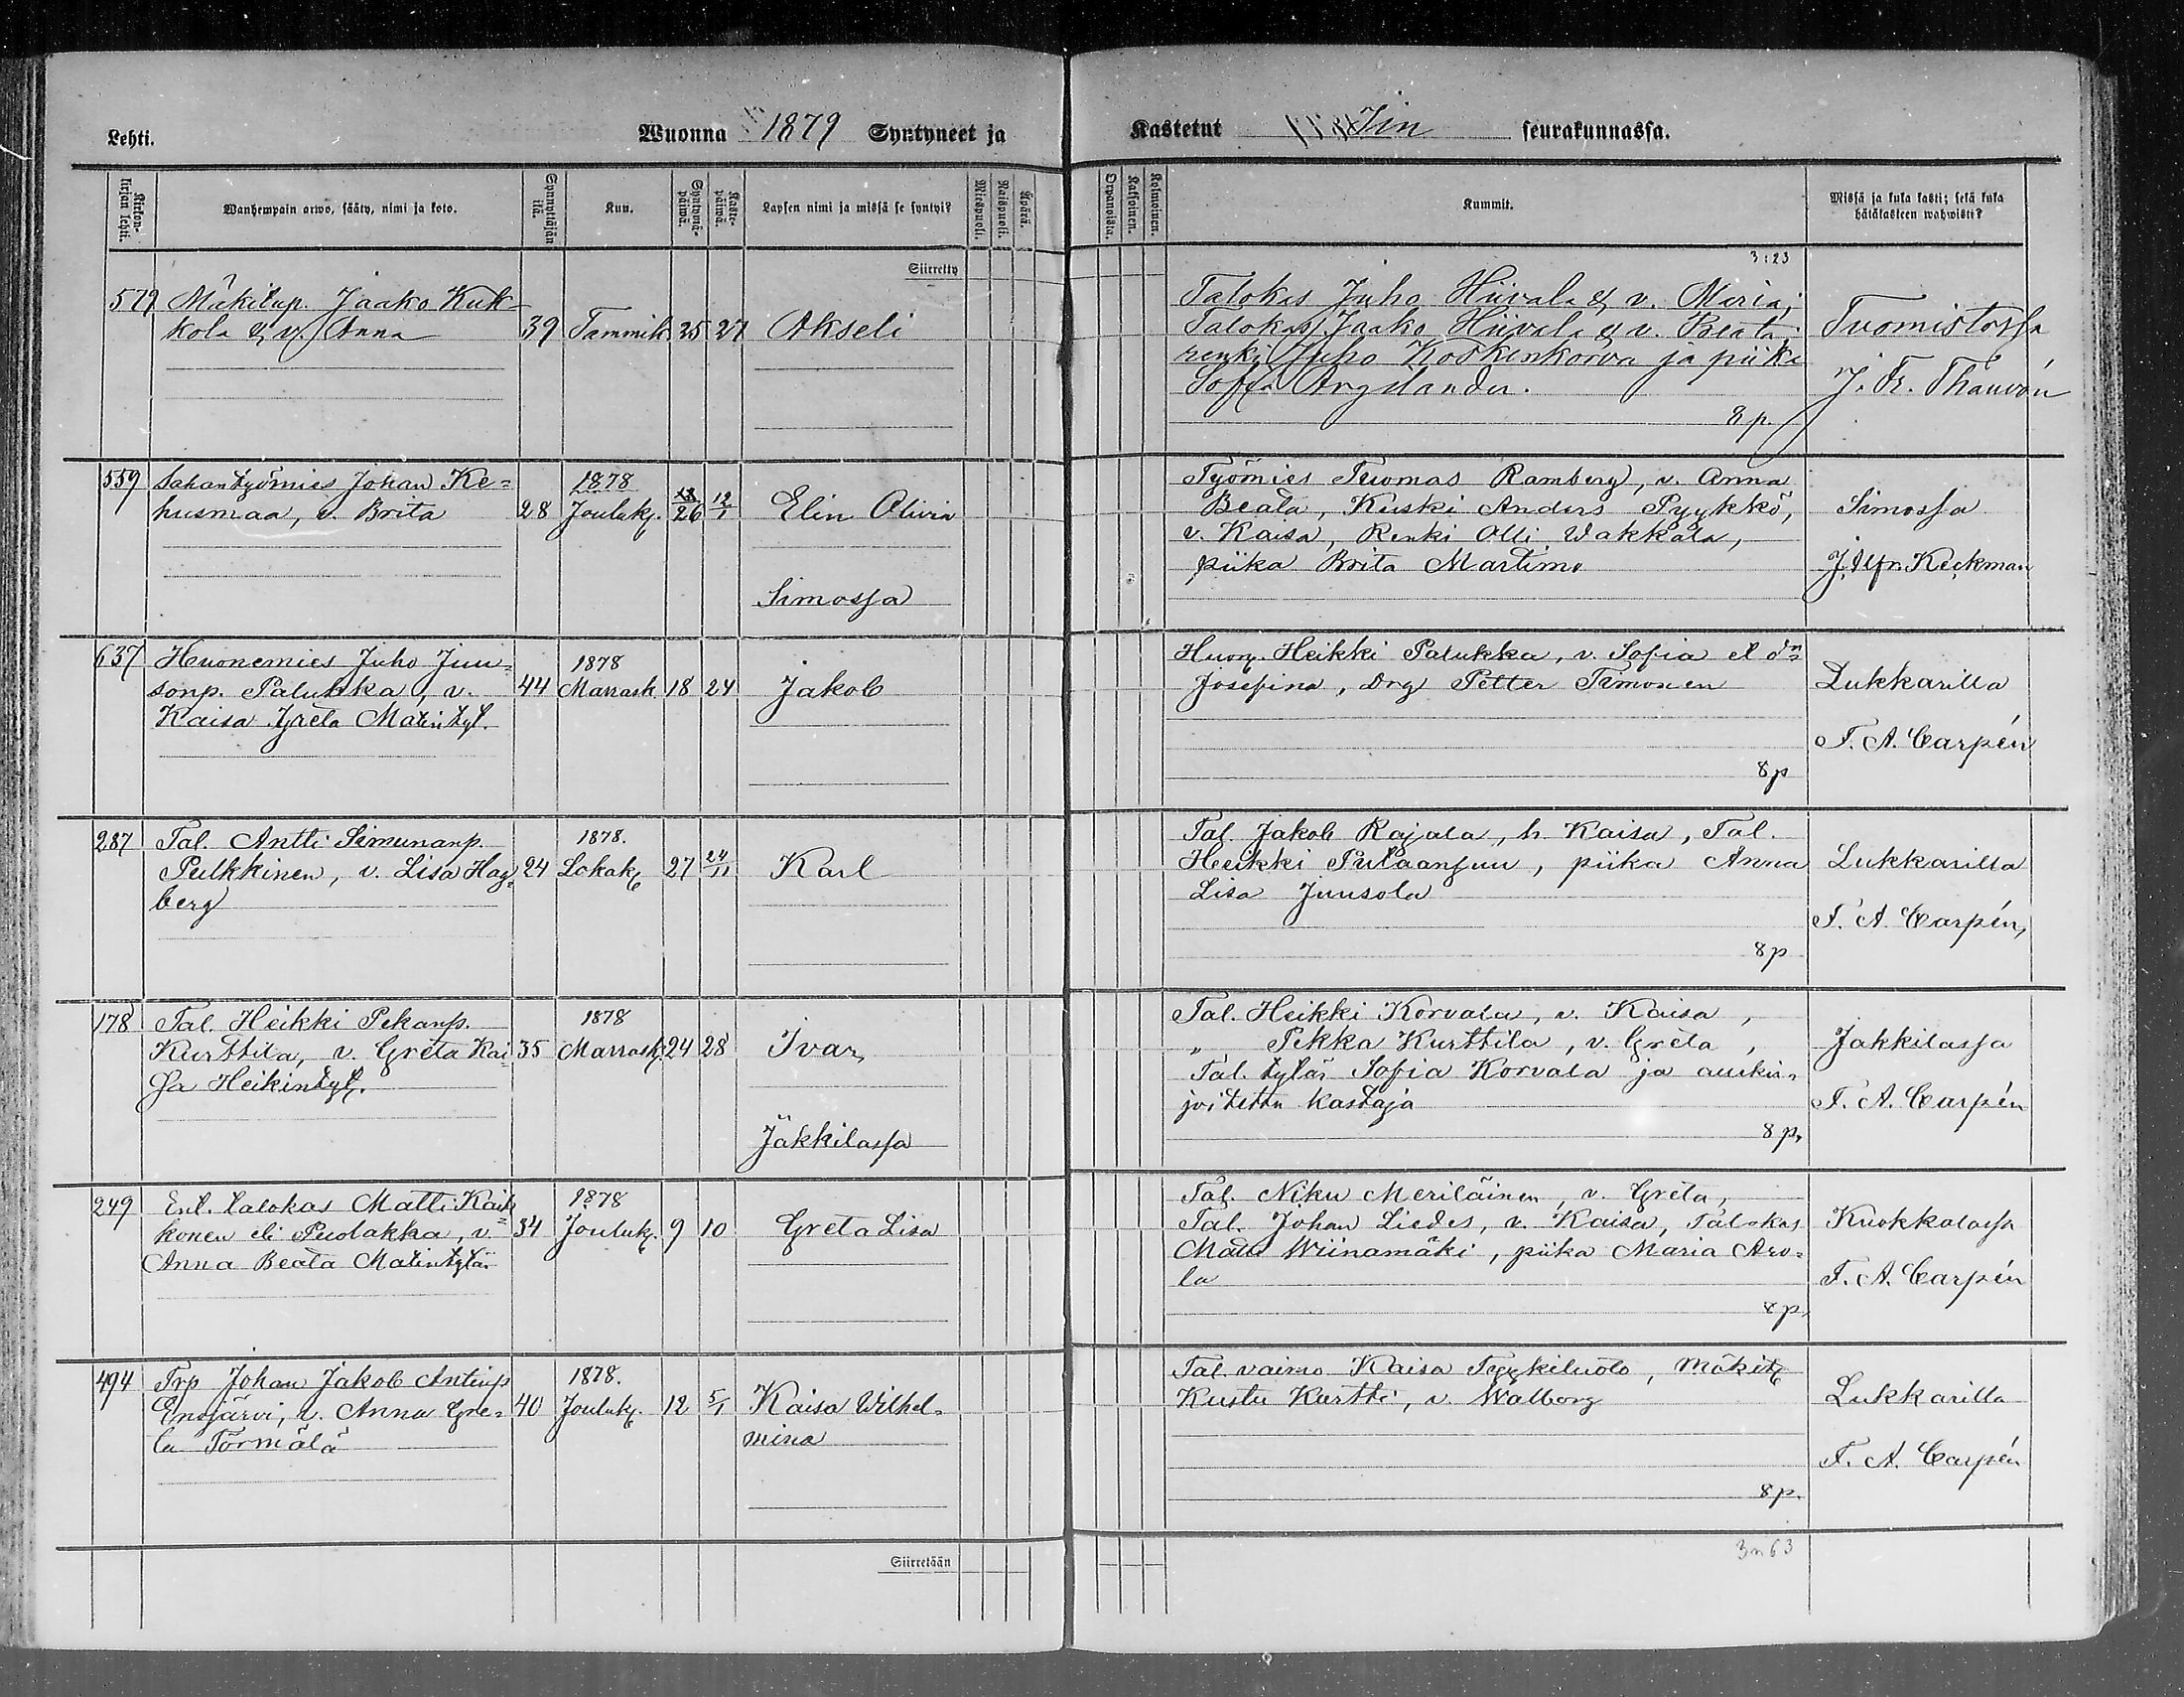 Lehti.
Wuonna 1879 Syntyneet ja
Kastetut Iin seurakunnassa.
Kirkon-kirjan lehti.
Wanhempain arwo, sääty, nimi ja koto.
Synnyttäjän ikä.
Kuu.
Syntymä-päiwä.
Kaste-päiwä.
Lapsen nimi ja missä se syntyi?
Miespuoli.
Naispuoli.
Äpärä.
Orpanoista.
Kaksoinen.
Kolmoinen.
Kummit.
Missä ja kuka kasti; sekä kuka
hätäkasteen wahwisti?
Siirretty
3:23
579 Mäkitup. Jaako Kuk-
kola & v. Anna 39 Tammik. 25 27 Akseli
Talokas Juho Hiivala & v. Maria;
Talokas Jaako Hiivala & v. Beata;
renki Juho Koskenkorva ja piika
Sofia
8 p.
Tuomistossa
J. Fr. Thauvón
559 Sahantyömies Johan Ke=
husmaa, v. Brita 28 1878 Jouluk. 26 12/1 Elin Olivia
Simossa
Työmies Tuomas Ramberg, v. Anna
Beata, Kuski Anders Pyykkö,
v. Kaisa, Renki Olli Wakkala,
piika Brita Martimo
Simossa
J. Alfr. Keckman
637 Huonemies Juho Juu=
sonp. Palukka, v. 44 1878 Marrask. 18 24 Jakob
Kaisa Greta Matintyt.
Huon. Heikki Palukka, v. Sofia
Josefina, Drg Petter Timonen
8 p
Lukkarilla
F. A. Carpén
287 Tal. Antti Simunanp.
Pulkkinen, v. Lisa Hag= 24 1878. Lokak. 27 24/11 Karl
berg
Tal. Jakob Rajala, h. Kaisa, Tal.
Heikki , piika Anna
Lisa Juusola
8 p
Lukkarilla
F. A. Carpén,
178 Tal. Heikki Pekanp.
Kurttila, v. Greta Kai= 35 1878 Marrask. 24 28 Ivar,
sa Heikintyt.
Jäkkilassa
Tal. Heikki Korvala, v. Kaisa,
„ Pekka Kurttila, v. Greta,
Tal. tytär Sofia Korvala ja auskir=
joitettu Kastaja
8 p,
Jakkilassa
F. A. Carpén
249 Ent. talokas Matti Kaik
konen eli Puolakka, v. 34 1878 Jouluk. 9 10 Greta Lisa
Anna Beata Matintytär
Tal. Niku Meriläinen, v. Greta,
Tal. Johan Liedes, v. Kaisa, Talokas
Matti Wiinamäki, piika Maria Aro=
la
8 p,
Kuokkalassa
F. A. Carpén
494 Trp Johan Jakob Antinp
Enojärvi, v. Anna Gre= 40 1878. Jouluk. 12 5/1 Kaisa Wilhel=
ta Törmälä
mina
Tal. vaimo Kaisa Tyykiluoto, Mäkit.
Kustu Kurtti, v. Walborg
8 p.
Lukkarilla
F. A. Carpén
Siirretään
3 n 63